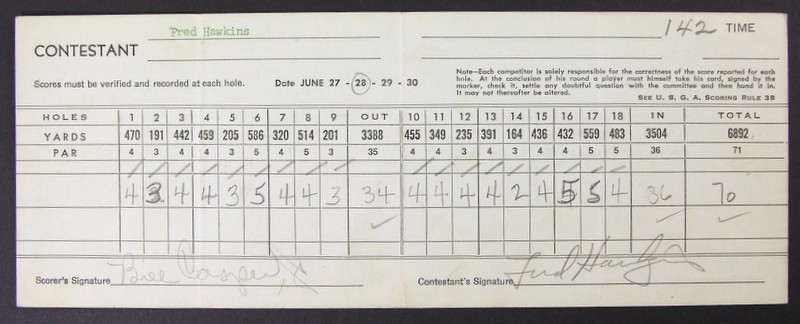 Fred Hawkins
142 TIME
CONTESTANT
Scores must be verified and recorded at each hole. Date JUNE 27 - 28 - 29 - 30
Note—Each competitor is solely responsible for the correctness of the score reported for each
hole. At the conclusion of his round a player must himself take his card, signed by the
marker, check it, settle any doubtful question with the committee and then hand it in.
It may not thereafter be altered.
SEE U. S. G. A. SCORING RULE 38
HOLES 1 2 3 4 5 6 7 8 9 OUT 10 11 12 13 14 15 16 17 18 IN TOTAL
YARDS 470 191 442 459 205 586 320 514 201 3388 455 349 235 391 164 436 432 559 483 3504 6892
PAR 4 3 4 4 3 5 4 5 3 35 4 4 3 4 3 4 4 5 5 36 71
4 3 4 4 3 5 4 4 3 34 4 4 4 4 2 4 5 5 4 36 70
Scorer's Signature Bill Casper, Jr Contestant's Signature Fred Hawkins